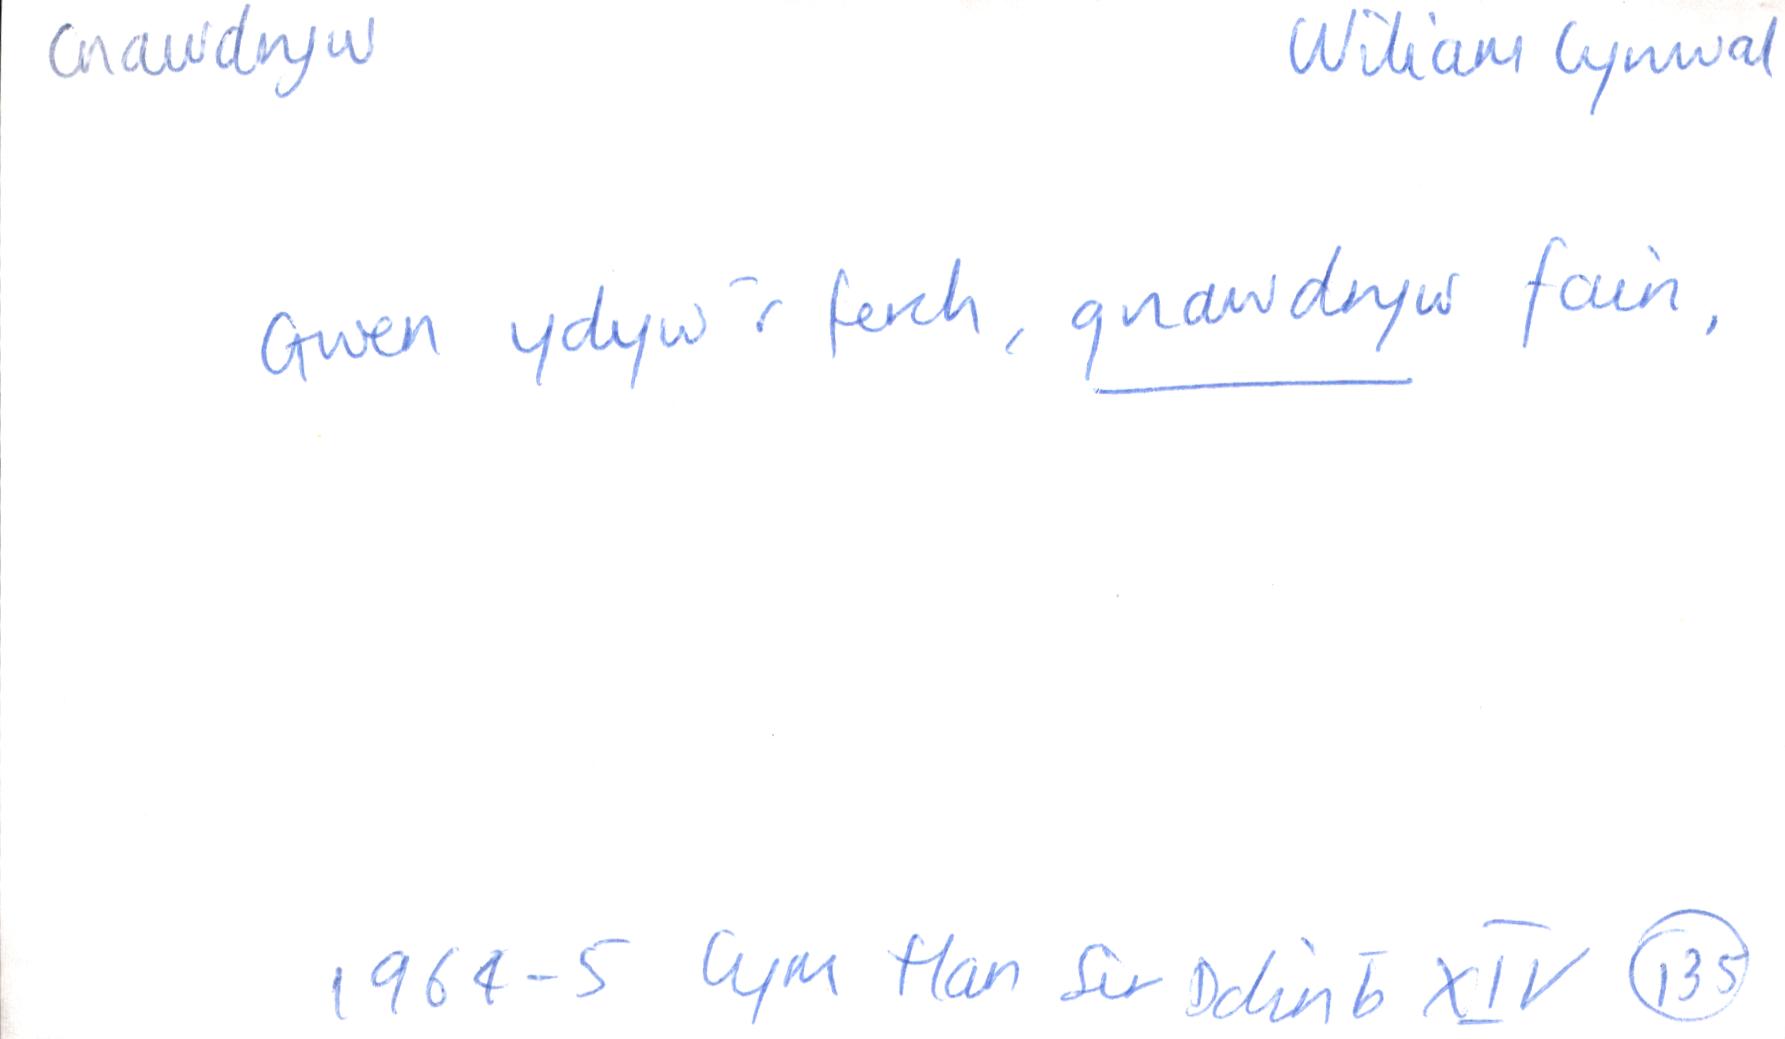 Cnawdryw Wiliam Cynwal
Gwen ydyw'r ferch, gnawdryw fain,
1964-5 Cym Han Sir Ddinb XIV 135